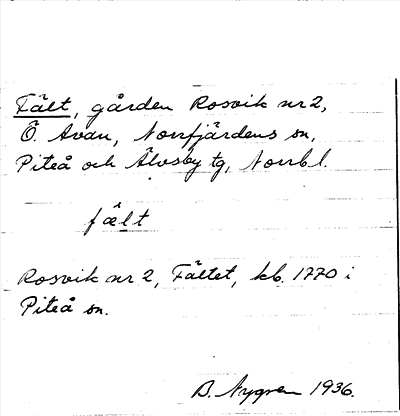 Fält, gården Rosvik nr 2,
Ö. Avan, Norrfjärdens sn,
Piteå och Älvsby tg, Norrb. l.
fæ̂lt
Rosvik nr 2, Fältet, kb. 1770 i
Piteå sn.
B. Nygren 1936.